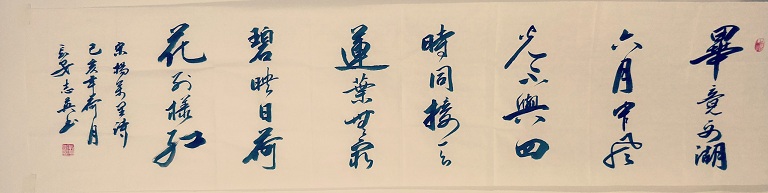 畢竟西湖
六月中風
光不與四
時同接天
蓮葉無窮
碧映日荷
花別樣紅
宋楊萬里詩
己亥年荷月
安志书